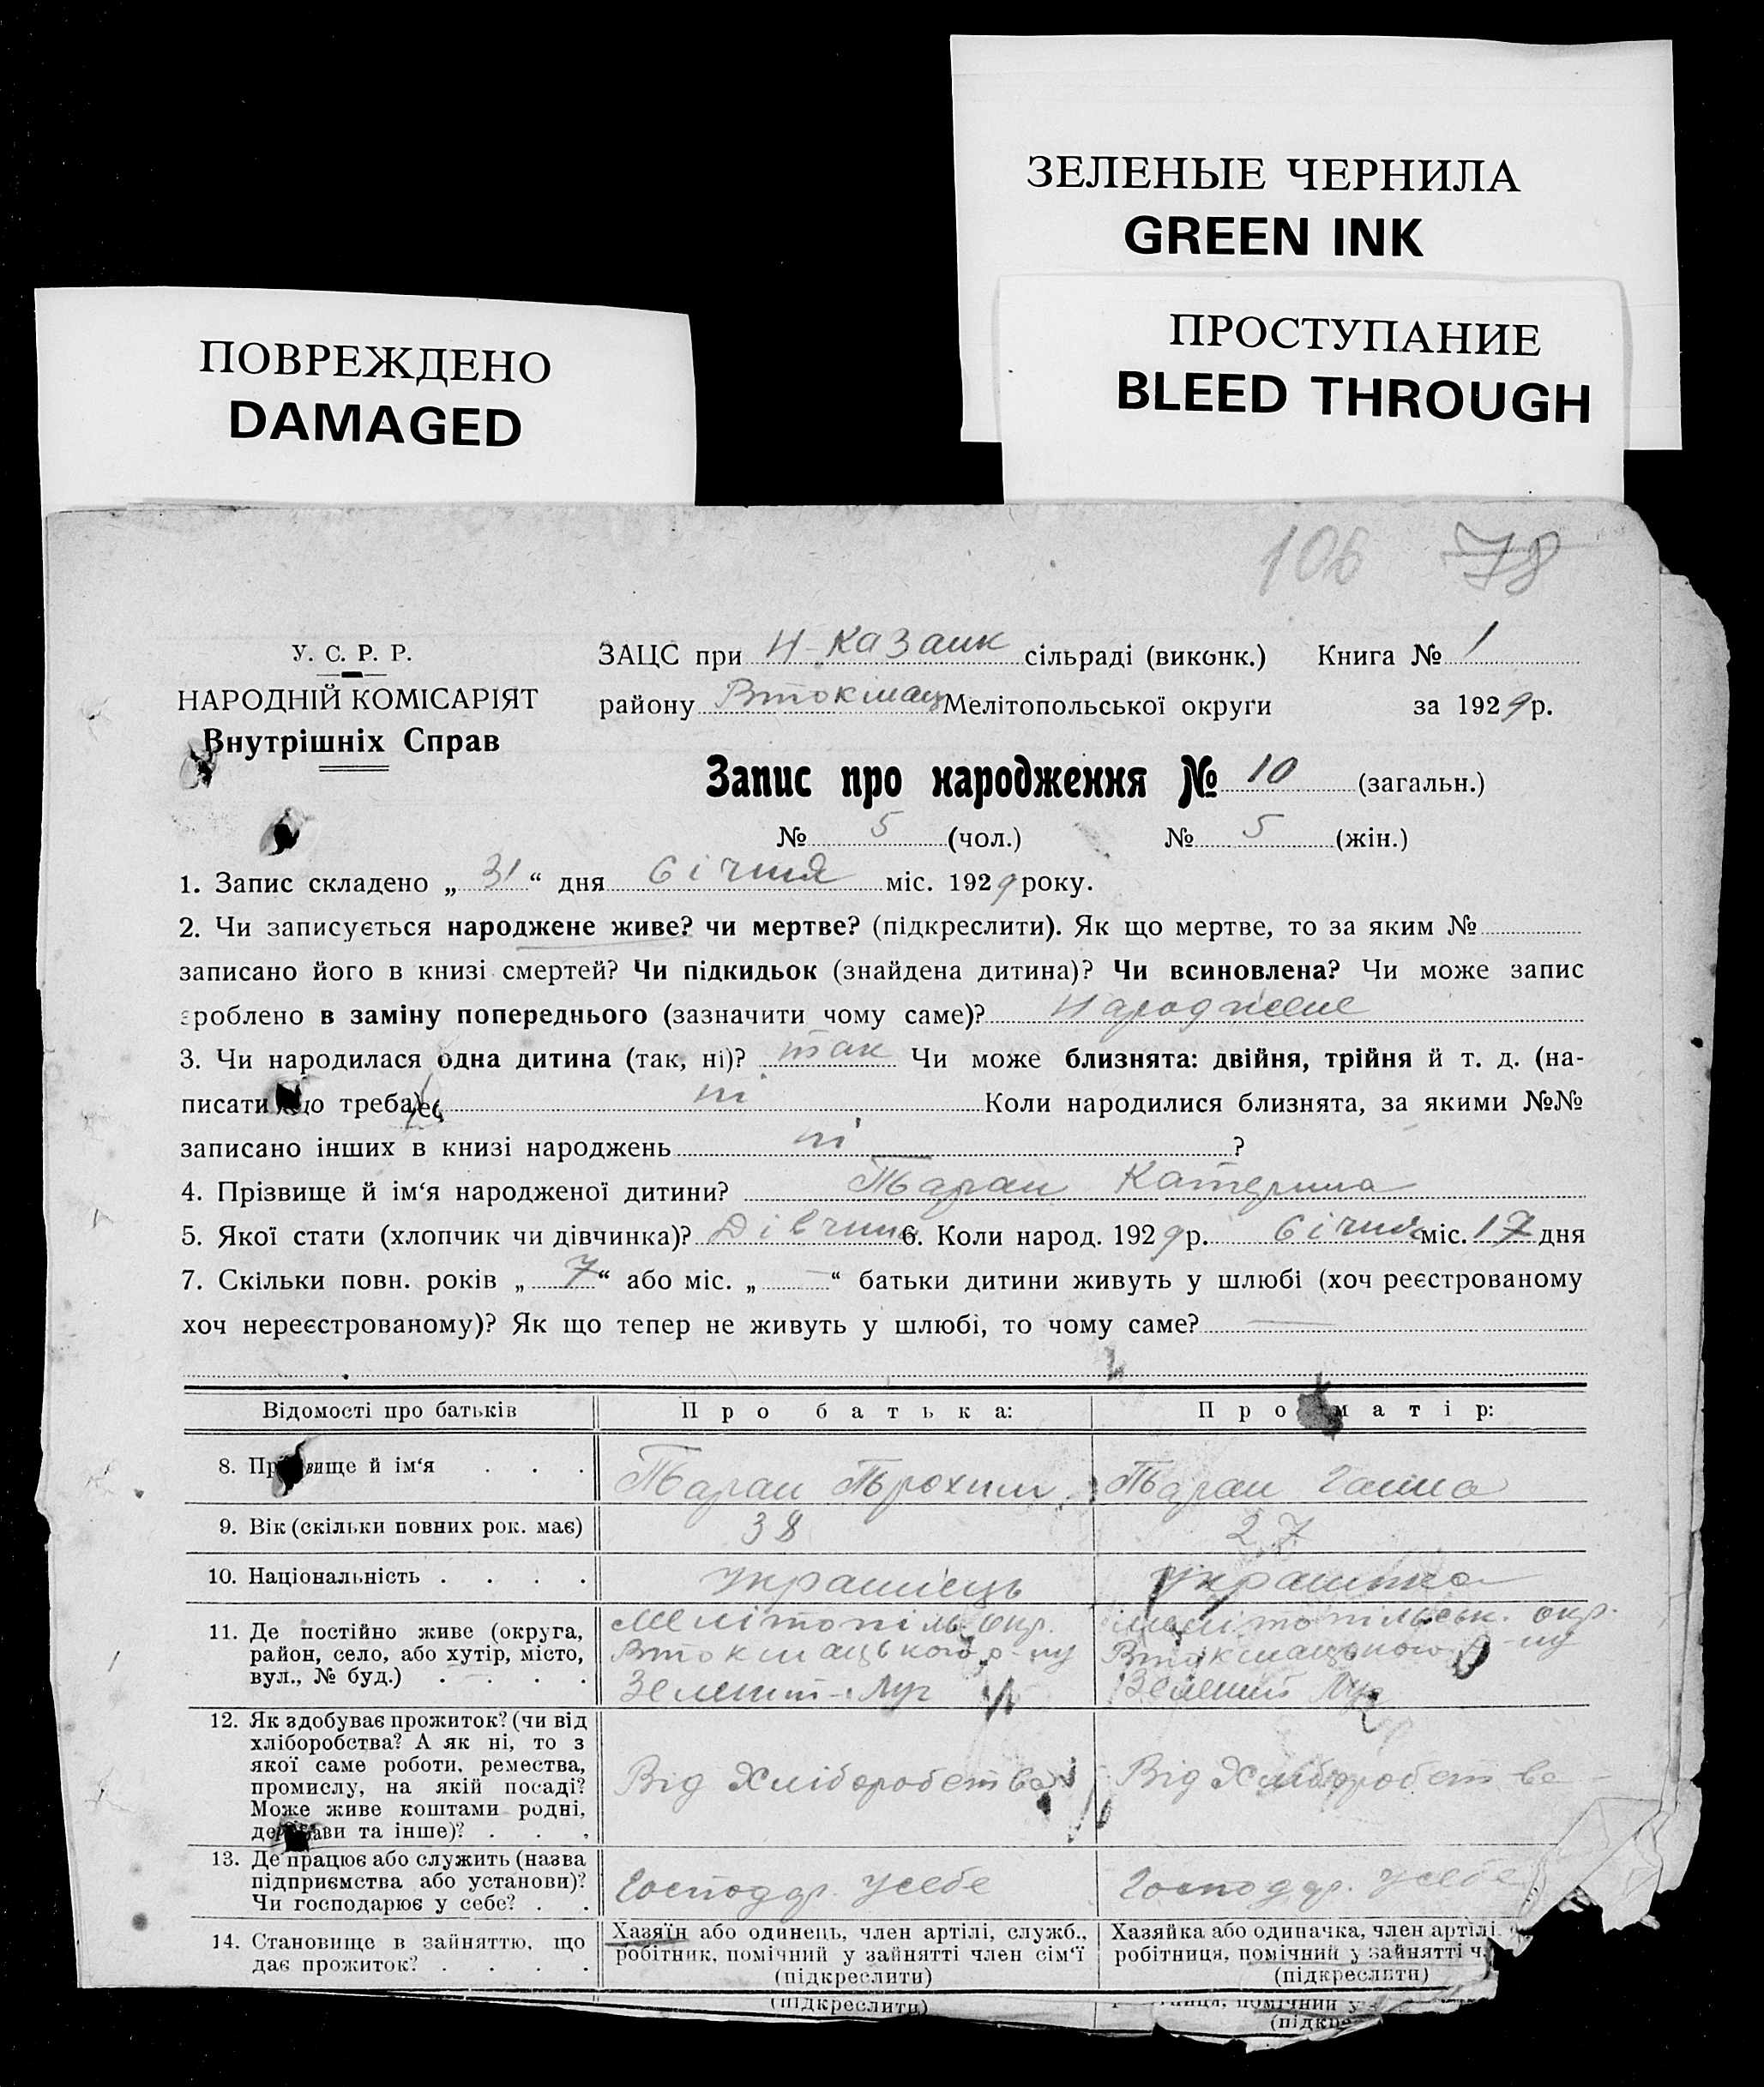 ЗЕЛЕНЫЕ ЧЕРНИЛА
GREEN INK
ПРОСТУПАНИЕ
BLEED THROUGH
ПОВРЕЖДЕНО
DAMAGED
106 78
У. С. Р. Р.
НАРОДНІЙ КОМІСАРІЯТ
Внутрішніх Справ
ЗАЦС при Н-Казанк сільраді (виконк.) Книга № 1
району Втокмац Мелітопольської округи за 1929 р.
Запис про народження № 10 (загальн.)
№ 5 (чол.) № 5 (жін.)
1. Запис складено „ 31 “ дня січня міс. 1929 року.
2. Чи записується народжене живе? чи мертве? (підкреслити). Як що мертве, то за яким №
записано його в книзі смертей? Чи підкидьок (знайдена дитина)? Чи всиновлена? Чи може запис
зроблено в заміну попереднього (зазначити чому саме)? Народжене
3. Чи народилася одна дитина (так, ні)? так Чи може близнята: двійня, трійня й т. д. (на-
писати що треба) ні Коли народилися близнята, за якими №№
записано інших в книзі народжень ні ?
4. Прізвище й ім‘я народженої дитини? Таран Катерина
5. Якої стати (хлопчик чи дівчинка)? Дівчина 6. Коли народ. 1929 р. січня міс. 17 дня
7. Скільки повн. років „ 7 “ або міс. „ — “ батьки дитини живуть у шлюбі (хоч реєстрованому
хоч нереєстрованому)? Як що тепер не живуть у шлюбі, то чому саме? —
Відомості про батьків Про батька: Про матір:
8. Прізвище й ім‘я . . . Таран Трохим Таран Ганна
9. Вік (скільки повних рок. має) 38 27
10. Національність . . . . Українець Українка
11. Де постійно живе (округа,
район, село, або хутір, місто,
вул., № буд.) . . . .
Мелітопіль окр.
Втокмацького р-ну
Зелений-Луг
Мелітопільськ. окр.
Втокмацького р-ну
Зелений Луг
12. Як здобуває прожиток? (чи від
хліборобства? А як ні, то з
якої саме роботи, ремества,
промислу, на якій посаді?
Може живе коштами родні,
держави та інше)? . . .
Від Хліборобства
Від Хліборобства
13. Де працює або служить (назва
підприємства або установи)?
Чи господарює у себе? . .
Господар. усебе
Господар. усебе
14. Становище в зайняттю, що
дає прожиток? . . . .
Хазяїн або одинець, член артілі, служб.,
робітник, помічний у зайнятті член сім‘ї
(підкреслити)
Хазяйка або одиначка, член артілі
робітниця, помічний у зайнятті ч
(підкреслити)
(підкреслити)
помічний у
(підкре